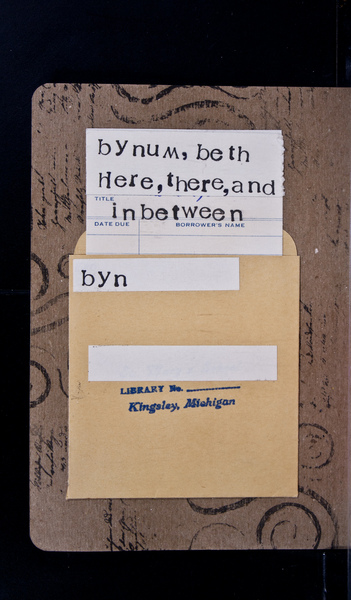 bynum, beth
Here, there, and
TITLE
inbetween
DATE DUE BORROWER'S NAME
byn
LIBRARY No.
Kingsley, Michigan